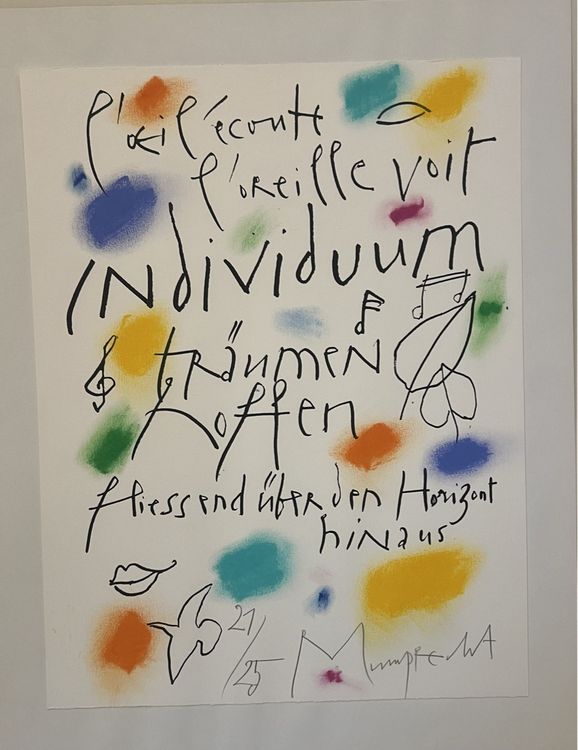 l'œil écoute
l'oreille voit
INdividuum
träumen
hoffen
fliessend über den Horizont
hinaus
21/25 Mumprecht